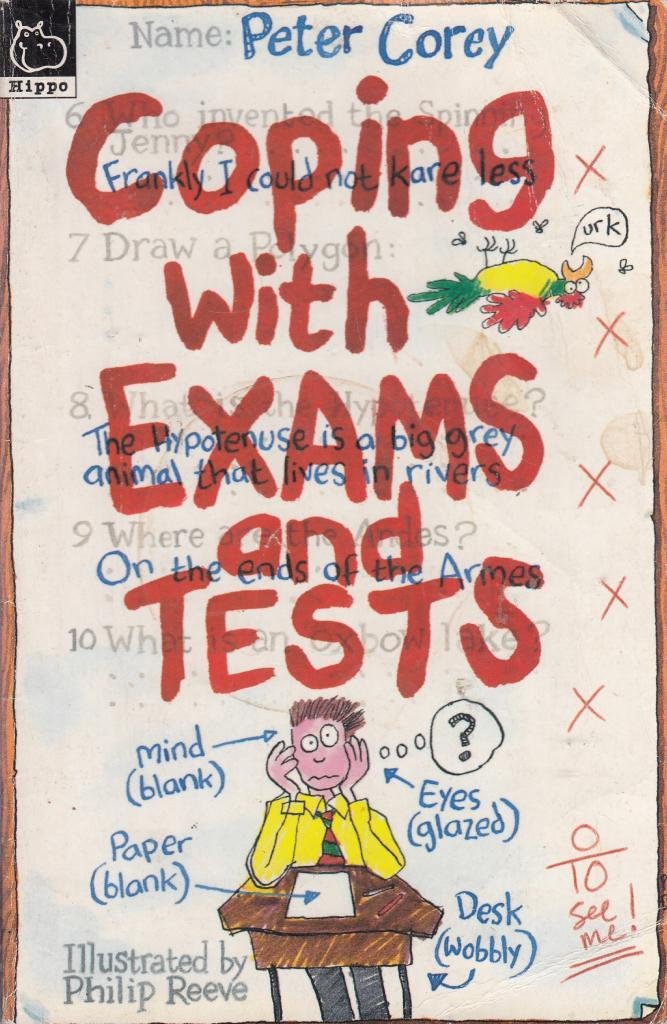 Hippo
Name: Peter Corey
Coping
6 Who invented the Spinning
Jenny?
Frankly I could not kare less
7 Draw a Polygon:
urk
with
EXAMS
8. What is the Hypotenuse?
The Hypotenuse is a big grey
animal that lives in rivers
9 Where are the Andes?
and
On the ends of the Armes
TESTS
10 What is an oxbow lake?
?
mind
(blank)
Eyes
(glazed)
Paper
(blank)
Desk
(wobbly)
0
10
see
me!
Illustrated by
Philip Reeve